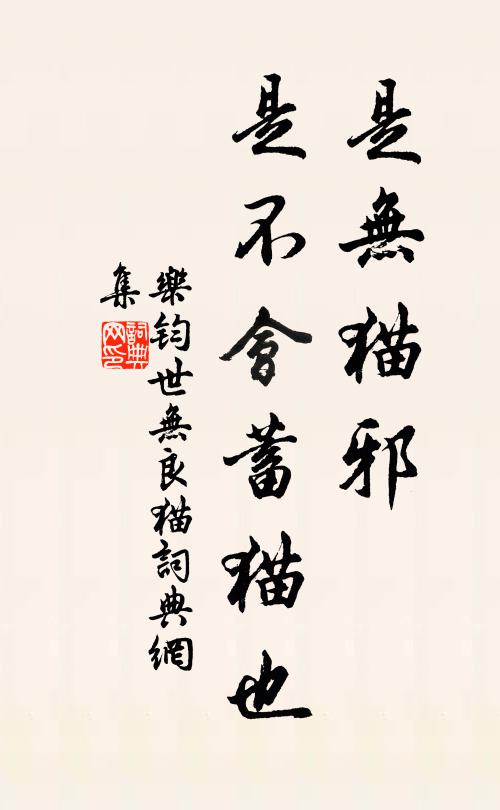 是無猫邪
是不會蓄猫也
樂鈞世無良猫詞典網
集
詞典网印